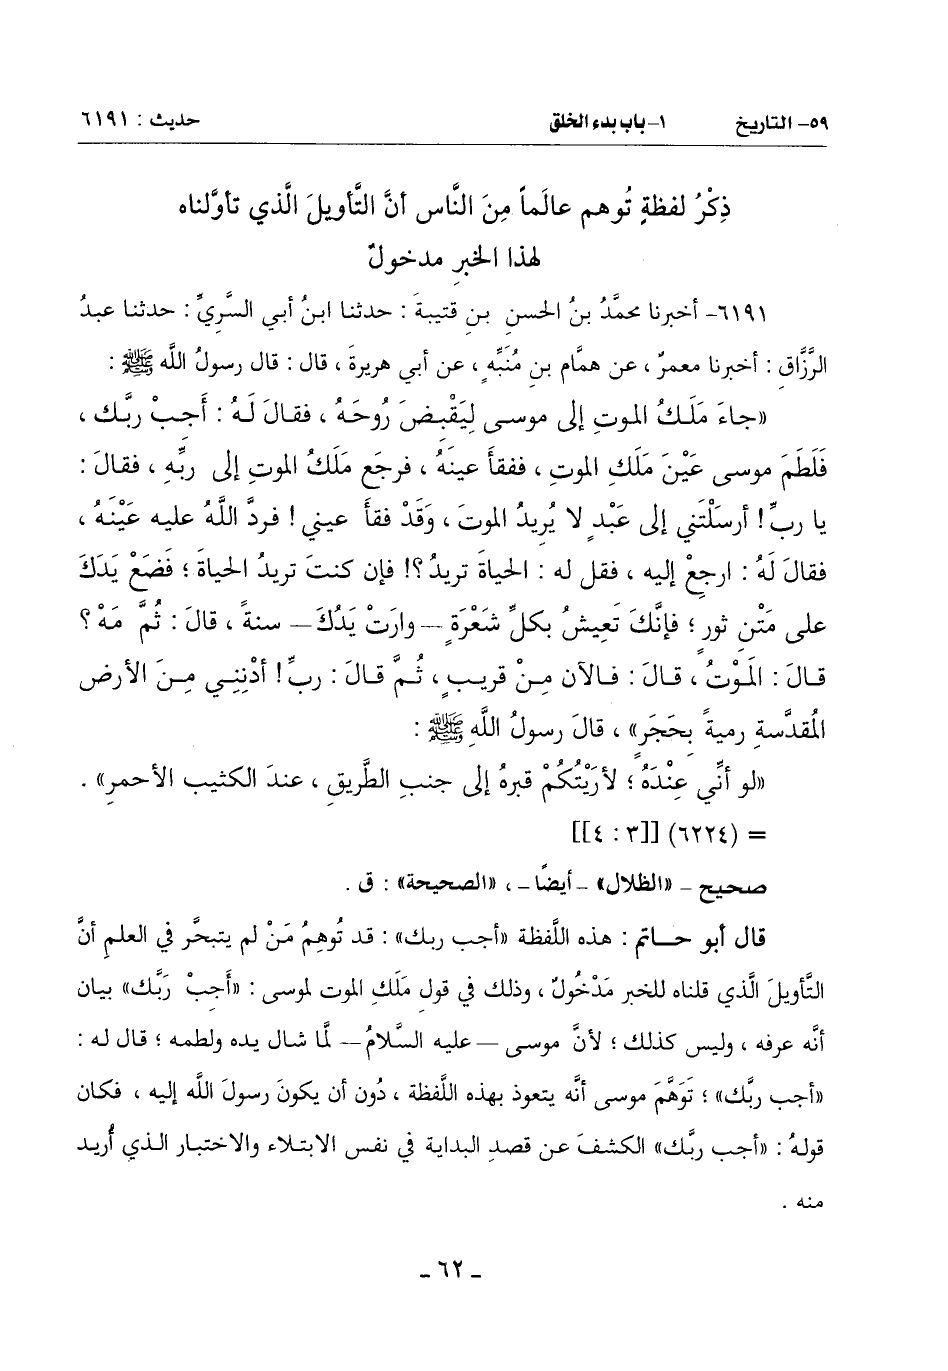 ٥٩- التاريخ ١- باب بدء الخلق حديث : ٦١٩١
ذِكْرُ لفظةٍ تُوهم عالَماً مِنَ النَّاس أنَّ التَّأويلَ الَّذي تأوَّلناه
لهذا الخبرِ مدخولٌ
٦١٩١- أخبرنا محمَّدُ بنُ الحسنِ بنِ قتيبةَ : حدثنا ابنُ أبي السَّريِّ : حدثنا عبدُ
الرَّزَّاقِ : أخبرنا معمرٌ ، عن همَّامِ بنِ مُنَبِّهٍ ، عن أبي هريرةَ ، قال : قال رسولُ اللَّه ﷺ :
«جاءَ مَلَكُ الموتِ إلى موسى لِيَقْبِضَ رُوحَهُ ، فقالَ لَهُ : أَجِبْ ربَّك ،
فَلَطَمَ موسى عَيْنَ مَلَكِ الموتِ ، ففقأَ عينَهُ ، فرجَع مَلَكُ الموتِ إلى ربِّهِ ، فقالَ :
يا ربِّ! أرسَلْتَني إلى عَبْدٍ لا يُريدُ الموتَ ، وَقَدْ فقأَ عيني ! فردَّ اللَّهُ عليه عَيْنَهُ ،
فقالَ لَهُ : ارجِعْ إليه ، فقل له : الحياةَ تريدُ؟! فإن كنتَ تريدُ الحياةَ ؛ فَضَعْ يَدَكَ
على مَتْنِ ثورٍ ؛ فإنَّكَ تَعيشُ بكلِّ شَعْرَةٍ —وارَتْ يَدُكَ— سنةً ، قالَ : ثُمَّ مَهْ ؟
قالَ : الَمَوْتُ ، قالَ : فالآن مِنْ قريبٍ ، ثُمَّ قالَ : ربِّ! أدْنِنِي مِنَ الأرض
المُقدَّسةِ رميةً بحَجَرٍ» ، قالَ رسولُ اللَّهِ ﷺ :
«لو أنِّي عِنْدَهُ ؛ لأرَيْتُكُمْ قبرهُ إلى جنبِ الطَّريقِ ، عندَ الكثيبِ الأحمرِ» .
= (٦٢٢٤) [[٣ : ٤]]
صحيح - «الظلال» - أيضاً - ، «الصحيحة» : ق .
قال أبو حاتم : هذه اللَّفظة «أجب ربك» : قد تُوهِمُ مَنْ لم يتبحَّر في العلمِ أنَّ
التَّأويلَ الَّذي قلناه للخبر مَدْخُولٌ ، وذلك في قولِ مَلَكِ الموت لموسى : «أَجِبْ رَبَّك» بيان
أنَّه عرفه ، وليس كذلك ؛ لأنَّ موسى —عليه السَّلامُ— لمَّا شال يده ولطمه ؛ قال له :
«أجب ربَّك» ؛ تَوَهَّمَ موسى أنَّه يتعوذ بهذه اللَّفظة ، دُون أن يكونَ رسولَ اللَّه إليه ، فكان
قولهُ : «أجب ربَّك» الكشفَ عن قصدِ البداية في نفس الابتلاء والاختبار الذي أُريد
منه .
- ٦٢ -